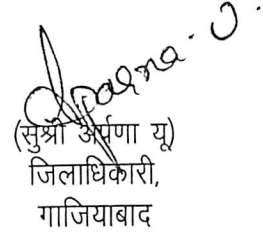 Aparna. U.
(सुश्री अर्पणा यू)
जिलाधिकारी,
गाजियाबाद